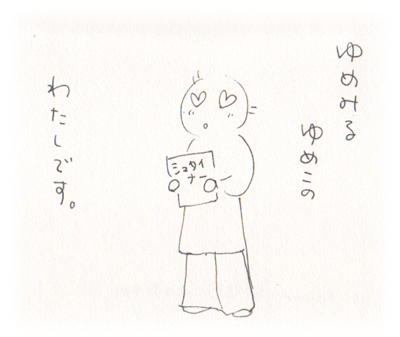 ゆめみる
ゆめこの
シュタイ
ナー
わたしです。